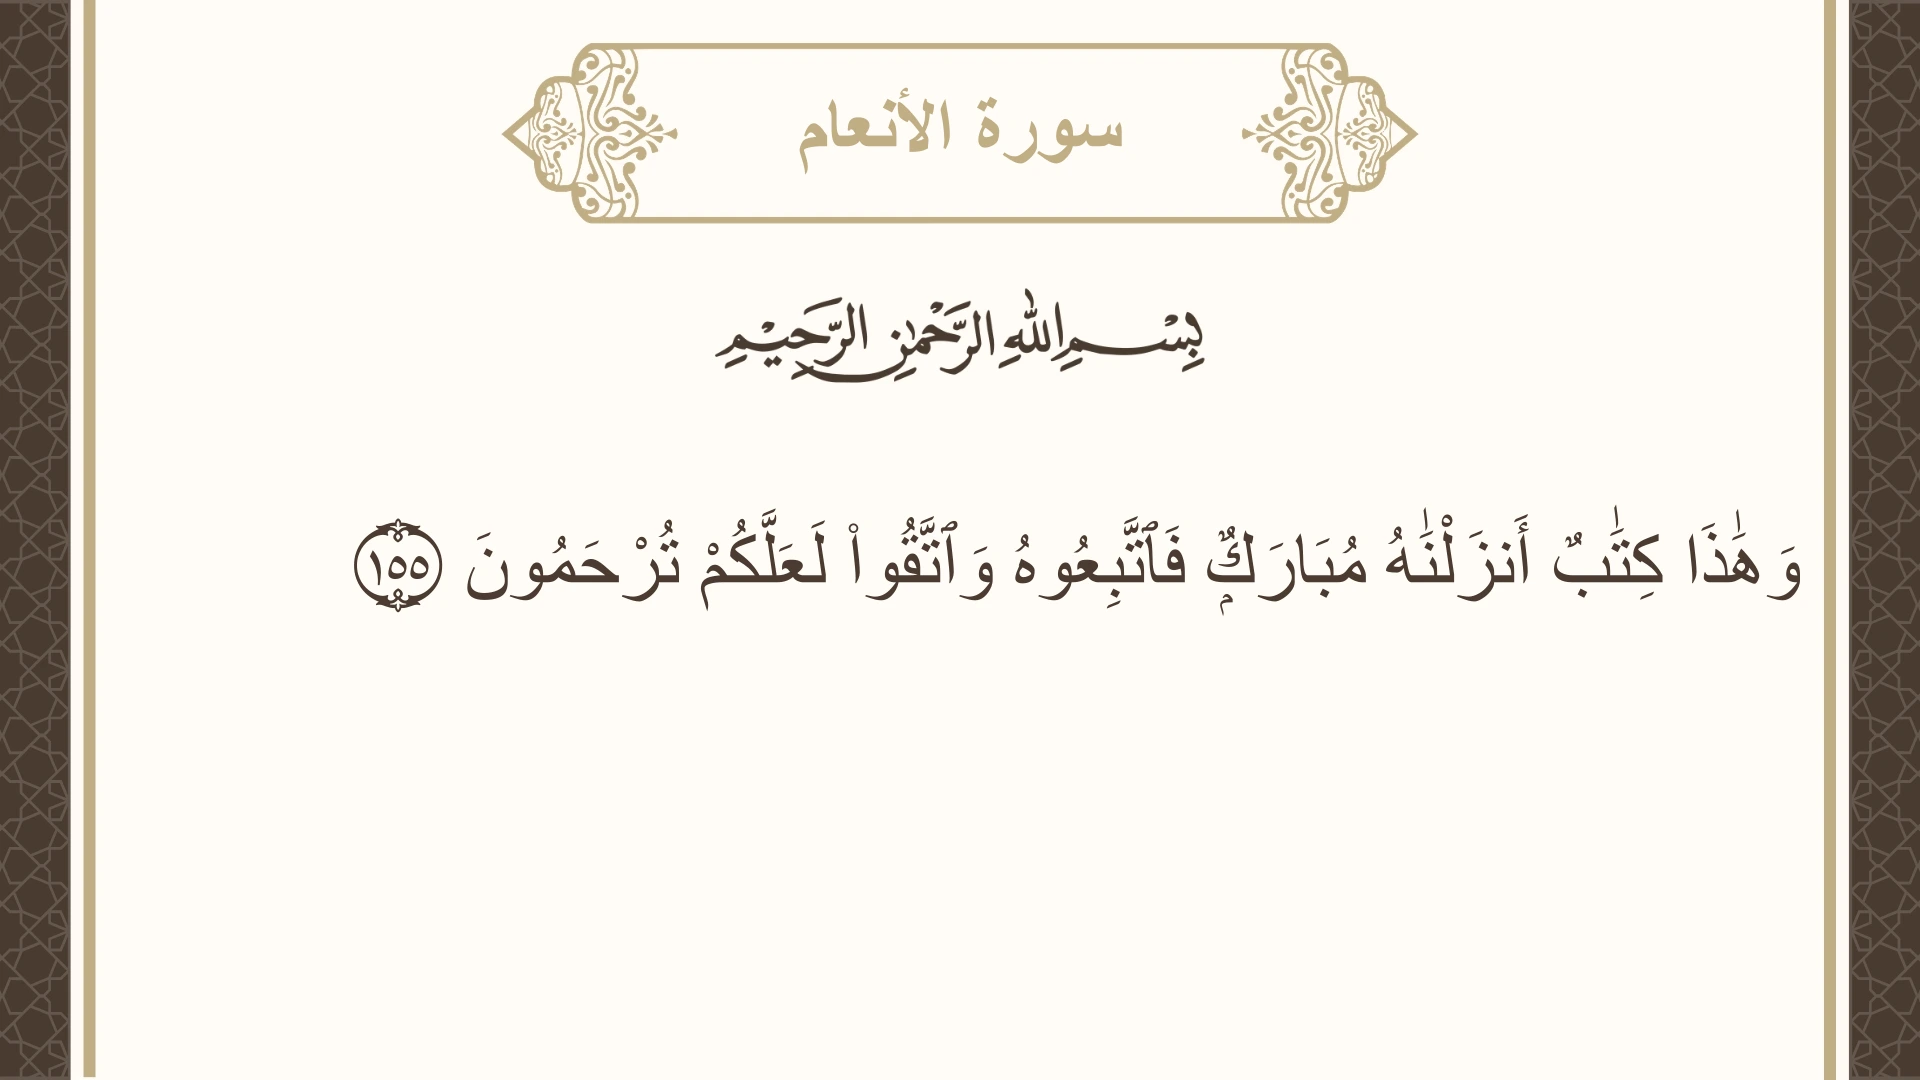 سورة الأنعام
بِسْمِ اللهِ الرَّحْمٰنِ الرَّحِيْمِ
وَهَٰذَا كِتَٰبٌ أَنزَلْنَٰهُ مُبَارَكٌۭ فَٱتَّبِعُوهُ وَٱتَّقُوا۟ لَعَلَّكُمْ تُرْحَمُونَ ١٥٥